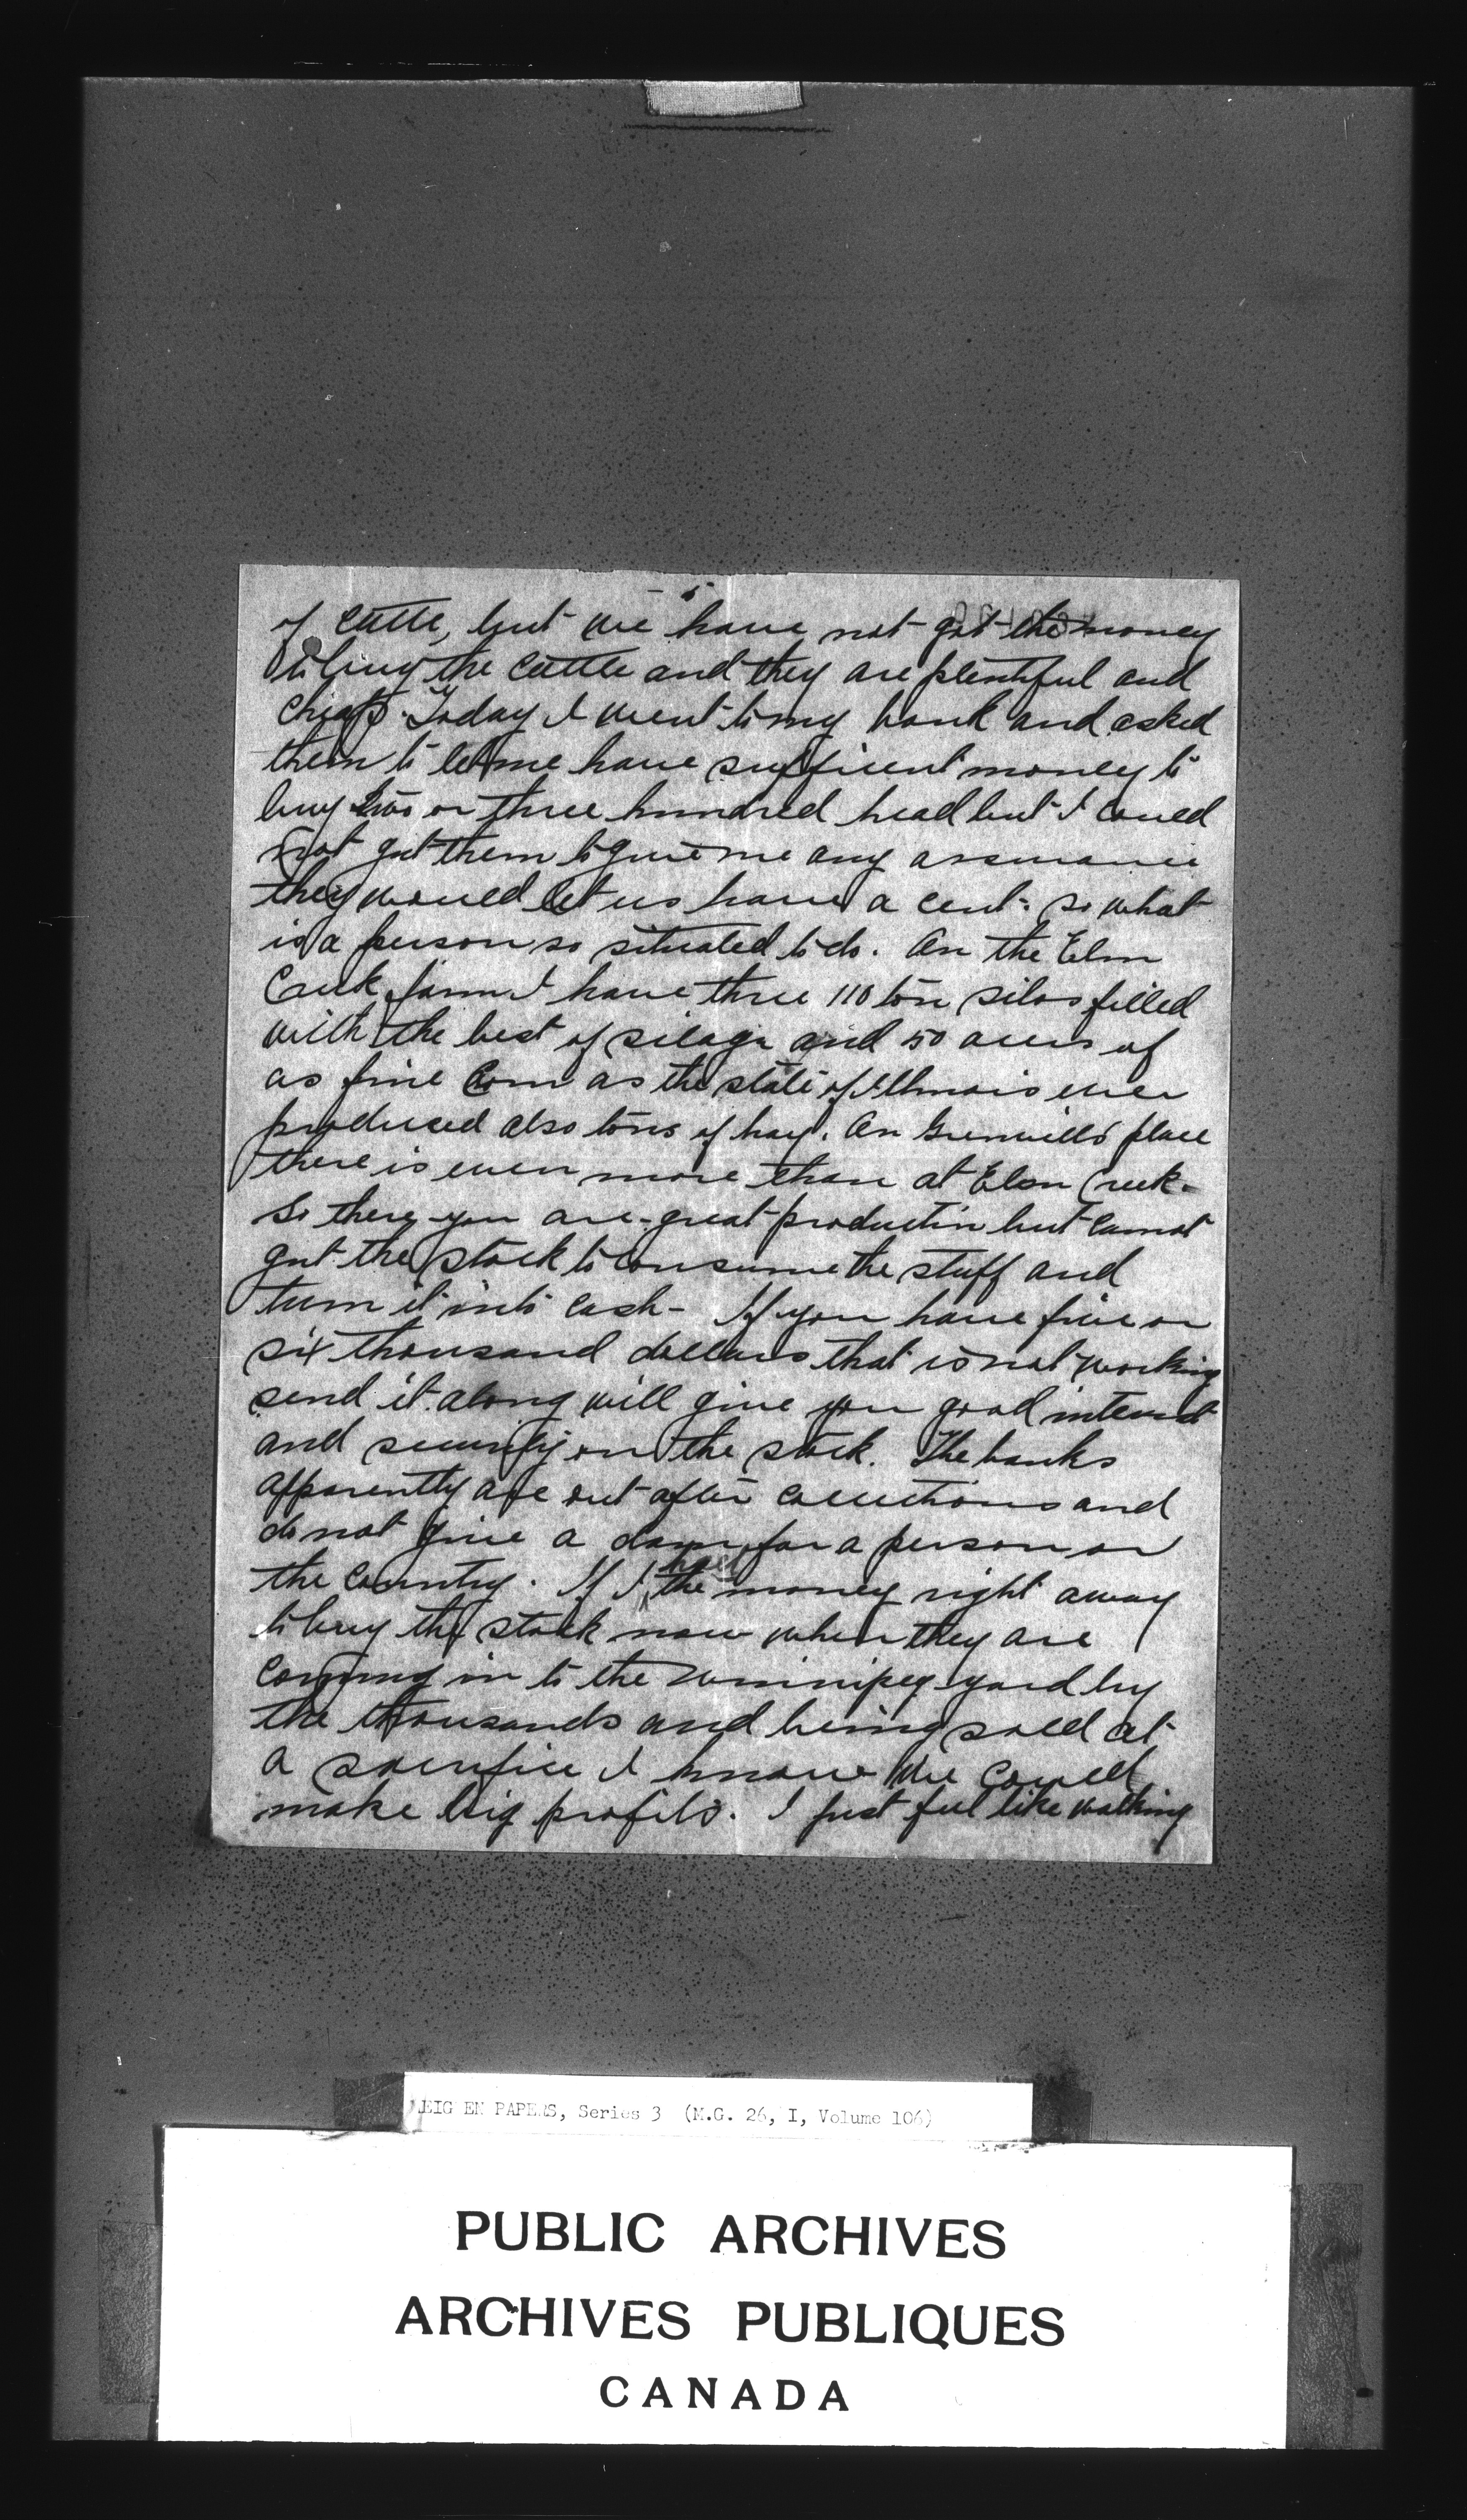 5
of cattle, but we have not got the money
to buy the cattle and they are plentiful and
cheap. Today I went to my bank and asked
them to let me have sufficient money to
buy two or three hundred head but I could
not get them to give me any assurance
they would let us have a cent: so what
is a person so situated to do. On the Elm
Creek farm I have three 110 ton silos filled
with the best of silage and 50 acres of
as fine corn as the state of Illinois ever
produced also tons of hay. On place
there is even more than at Elm Creek.
So there you are - great production but cannot
get the stock to consume the stuff and
turn it into cash - If you have five or
six thousand dollars that is not working
send it along will give you good interest
and security on the stock. The banks
apparently are out after collections and
do not give a damn for a person or
the country. If I had the money right away
to buy the stock now when they are
coming in to the Winnipeg yard by
the thousands and being sold at
a sacrifice I know we could
make big profits. I just feel like walking
EIG EN PAPERS, Series 3 (M.G. 26, I, Volume 106)
PUBLIC ARCHIVES
ARCHIVES PUBLIQUES
CANADA